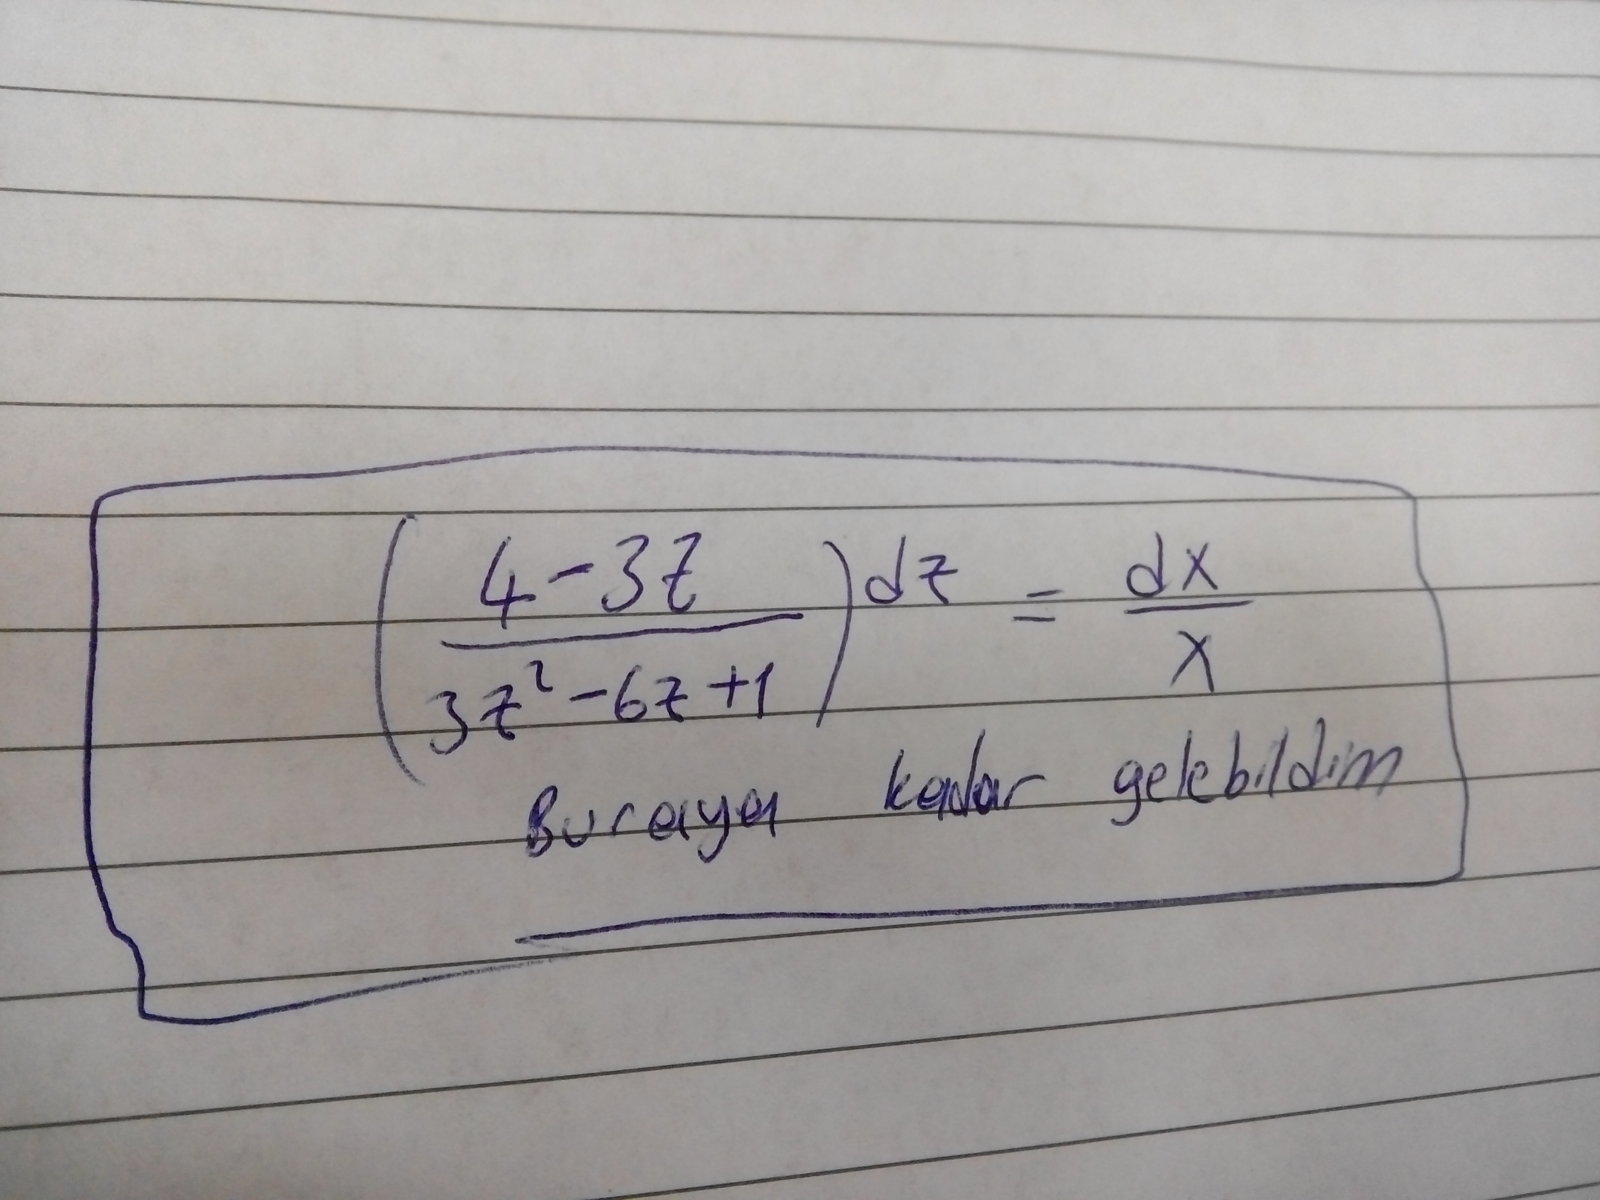 (4-3z / 3z²-6z+1) dz = dx / x
Buraya kadar gelebildim